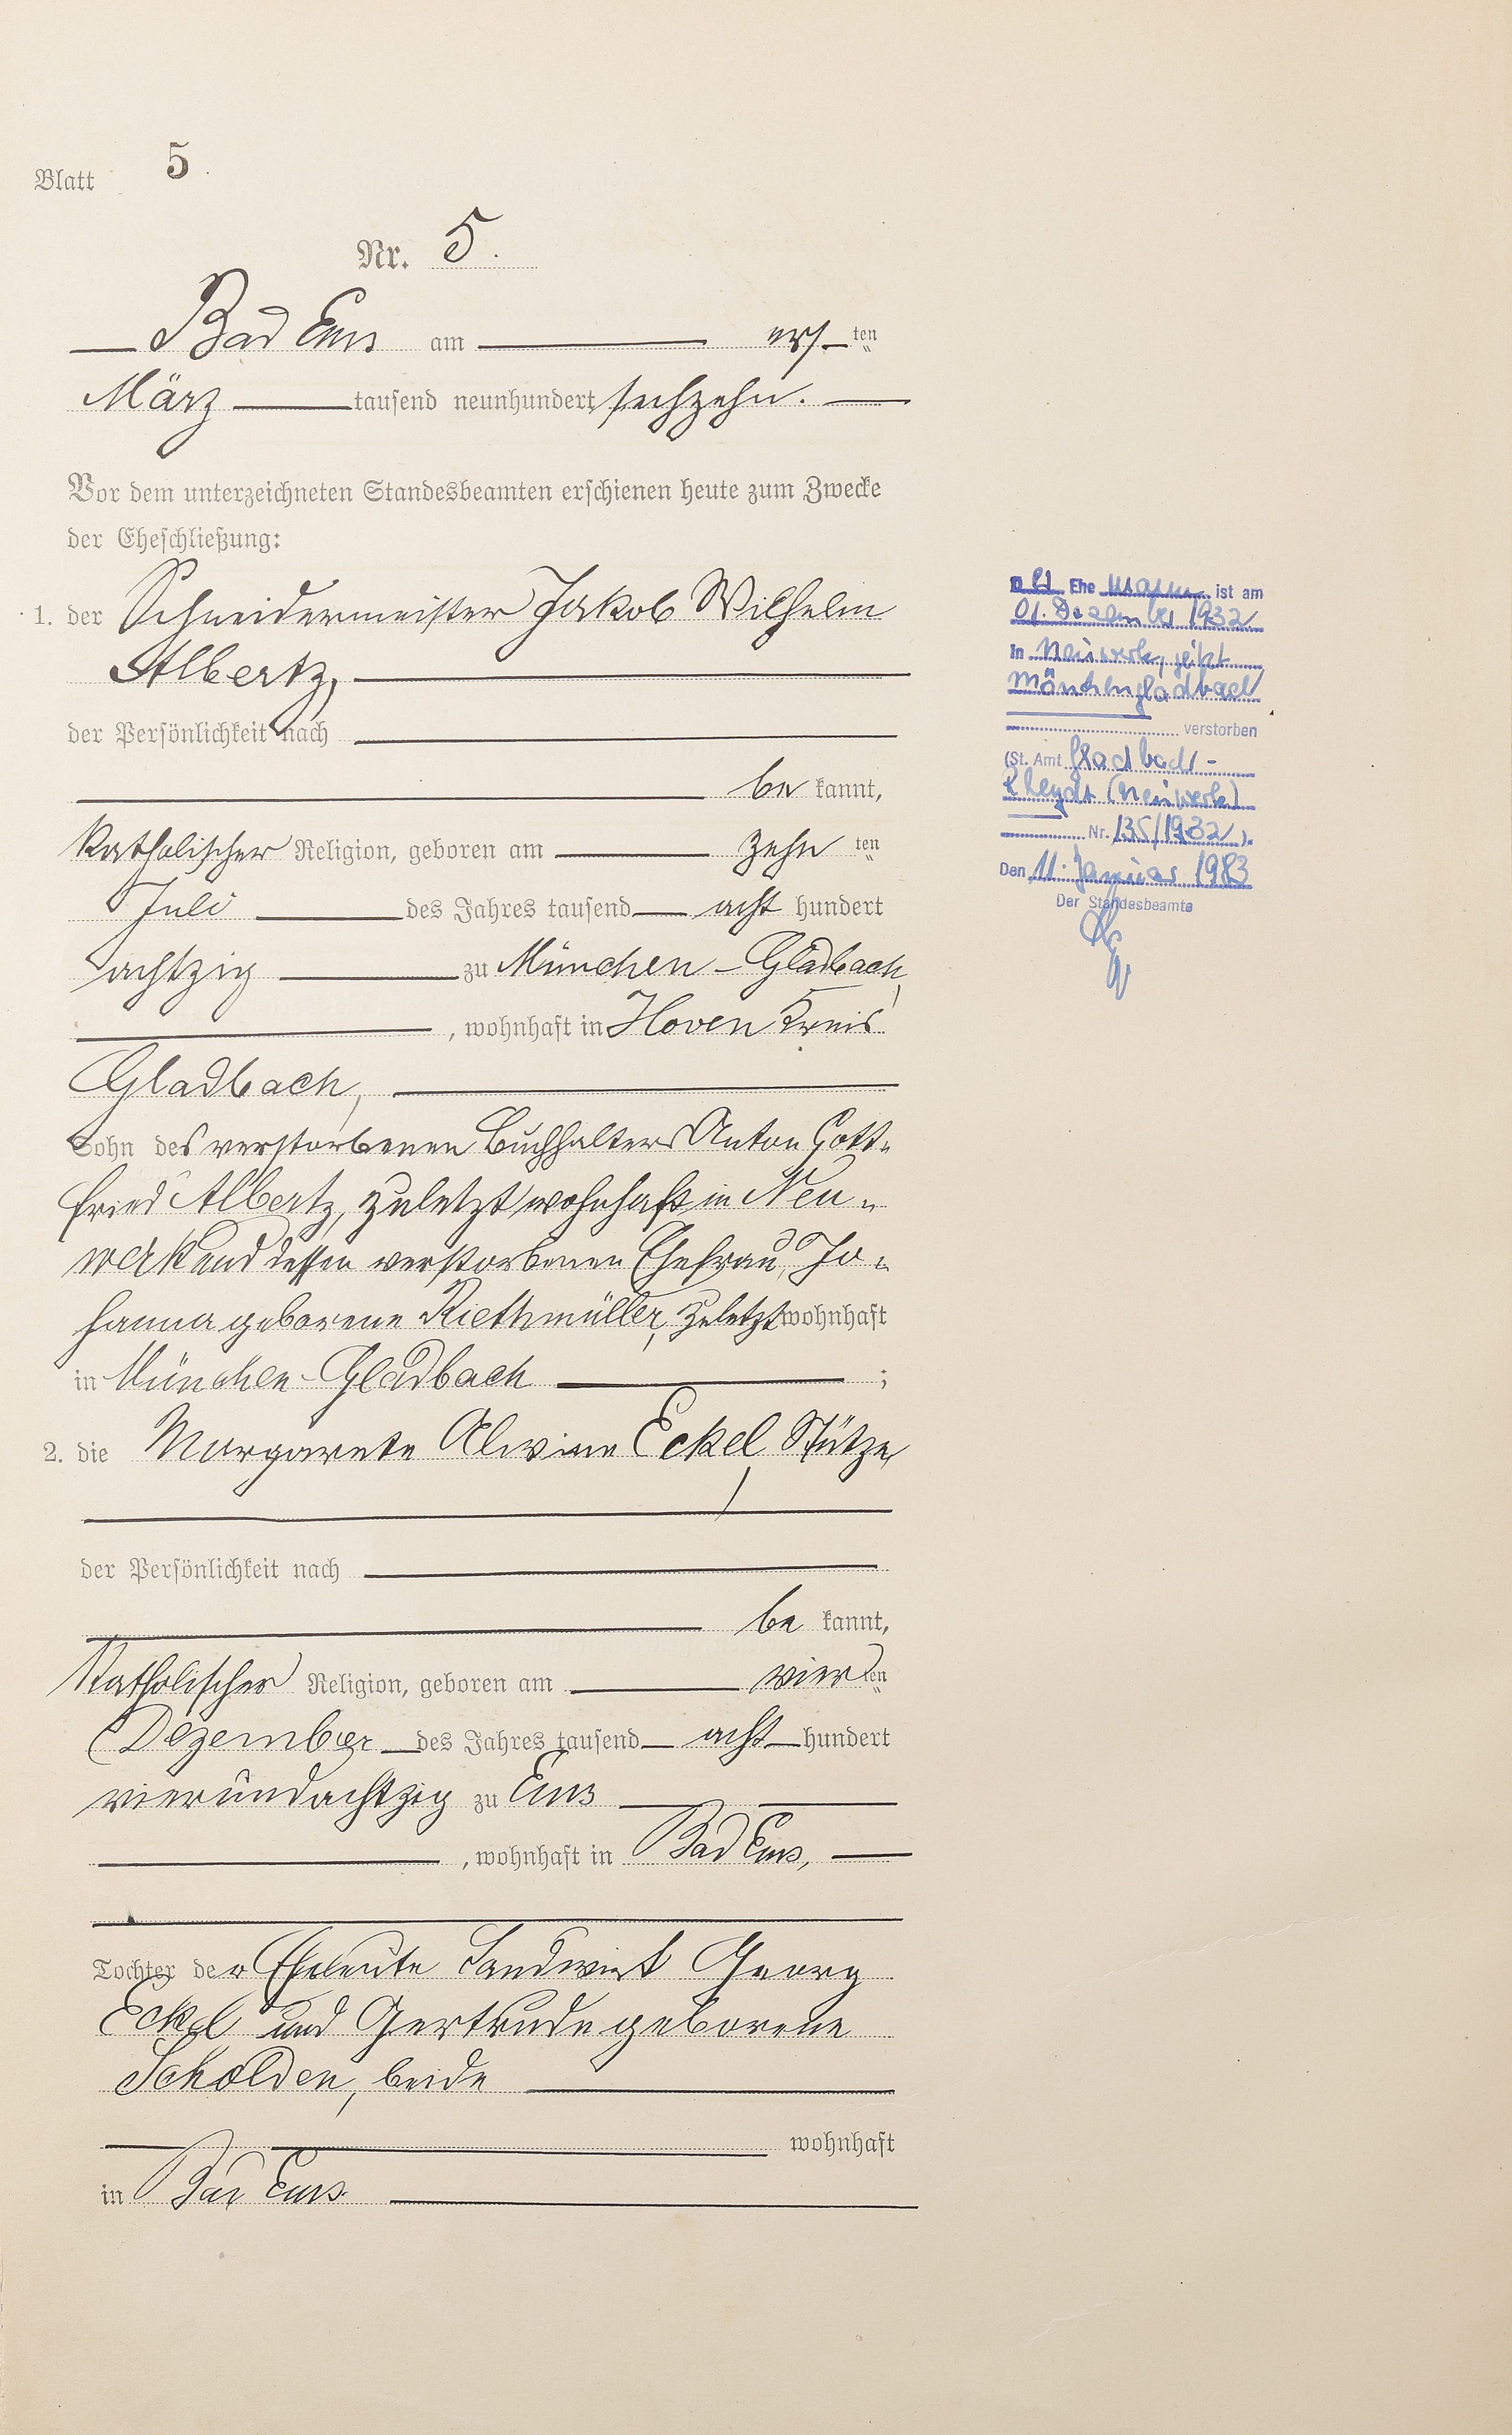 Blatt 5.
Nr. 5.
Bad Ems am ersten
März tausend neunhundert sechzehn.
Vor dem unterzeichneten Standesbeamten erschienen heute zum Zwecke
der Eheschließung:
1. der Schneidermeister Jakob Wilhelm
Albertz,
der Persönlichkeit nach
bekannt,
katholischer Religion, geboren am zehnten
Juli des Jahres tausend acht hundert
achtzig zu München-Gladbach,
, wohnhaft in Hoven Kreis
Gladbach,
Sohn des verstorbenen Buchhalters Anton Gott=
fried Albertz, zuletzt wohnhaft in Neu=
werk und dessen verstorbenen Ehefrau, Jo=
hanna geborene Riethmüller, zuletzt wohnhaft
in München-Gladbach ;
2. die Margarete Alwine Eckel, Stütze
der Persönlichkeit nach
bekannt,
katholischer Religion, geboren am vierten
Dezember des Jahres tausend acht hundert
vierundachtzig zu Ems
, wohnhaft in Bad Ems,
Tochter der Eheleute Landwirt Georg
Eckel und Gertrude geborene
Scholden, beide
wohnhaft
in Bad Ems
Der Ehemann ist am
01. Dezember 1932
in Neuwerk, jetzt
Mönchengladbach
verstorben
(St. Amt Gladbach-
Rheydt (Neuwerk)
Nr. 135/1932).
Den 11. Januar 1983
Der Standesbeamte